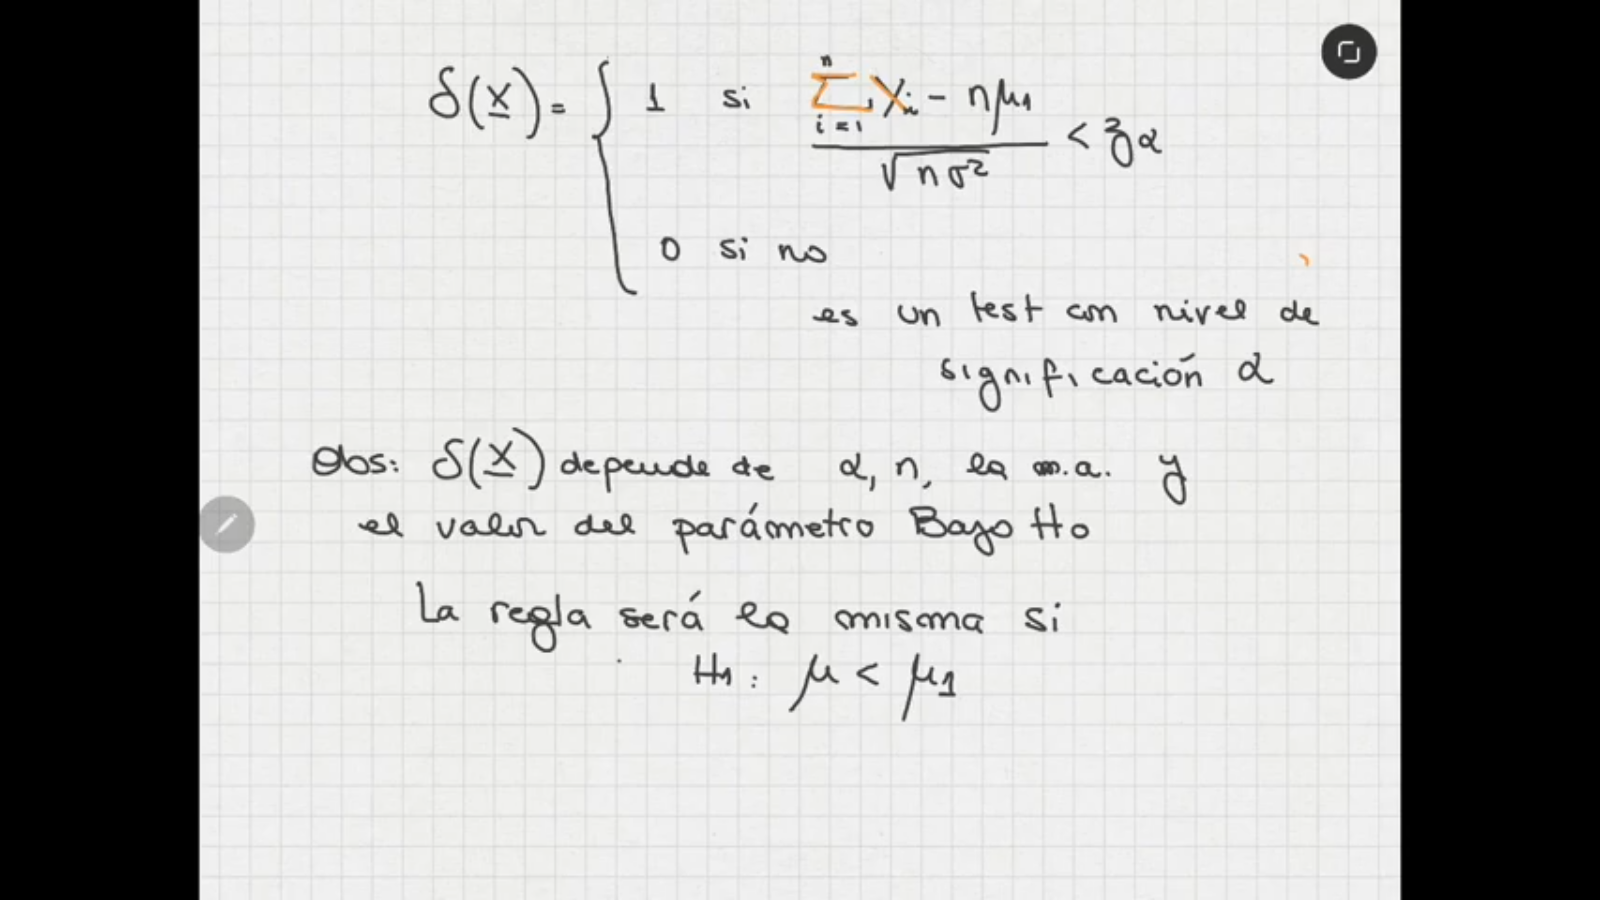 δ(X) = { 1 si (∑_{i=1}^{n} Xi - nμ1) / √(nσ²) < zα
0 si no
es un test con nivel de
significación α
Obs: δ(X) depende de α, n, la m.a. y
el valor del parámetro Bajo Ho
La regla será la misma si
H1: μ < μ1